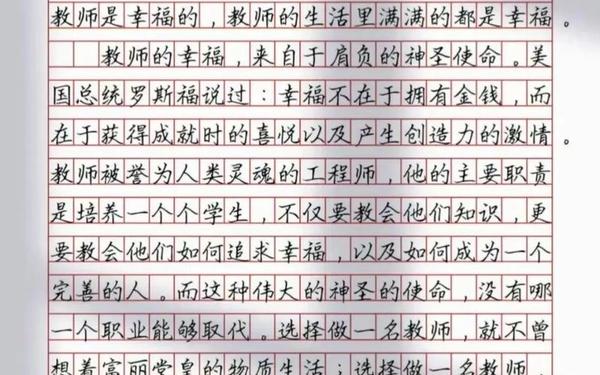 教师是幸福的，教师的生活里满满的都是幸福。
教师的幸福，来自于肩负的神圣使命。美
国总统罗斯福说过：幸福不在于拥有金钱，而
在于获得成就时的喜悦以及产生创造力的激情。
教师被誉为人类灵魂的工程师，他的主要职责
是培养一个个学生，不仅要教会他们知识，更
要教会他们如何追求幸福，以及如何成为一个
完善的人。而这种伟大的神圣的使命，没有哪
一个职业能够取代。选择做一名教师，就不曾
想着富丽堂皇的物质生活；选择做一名教师，